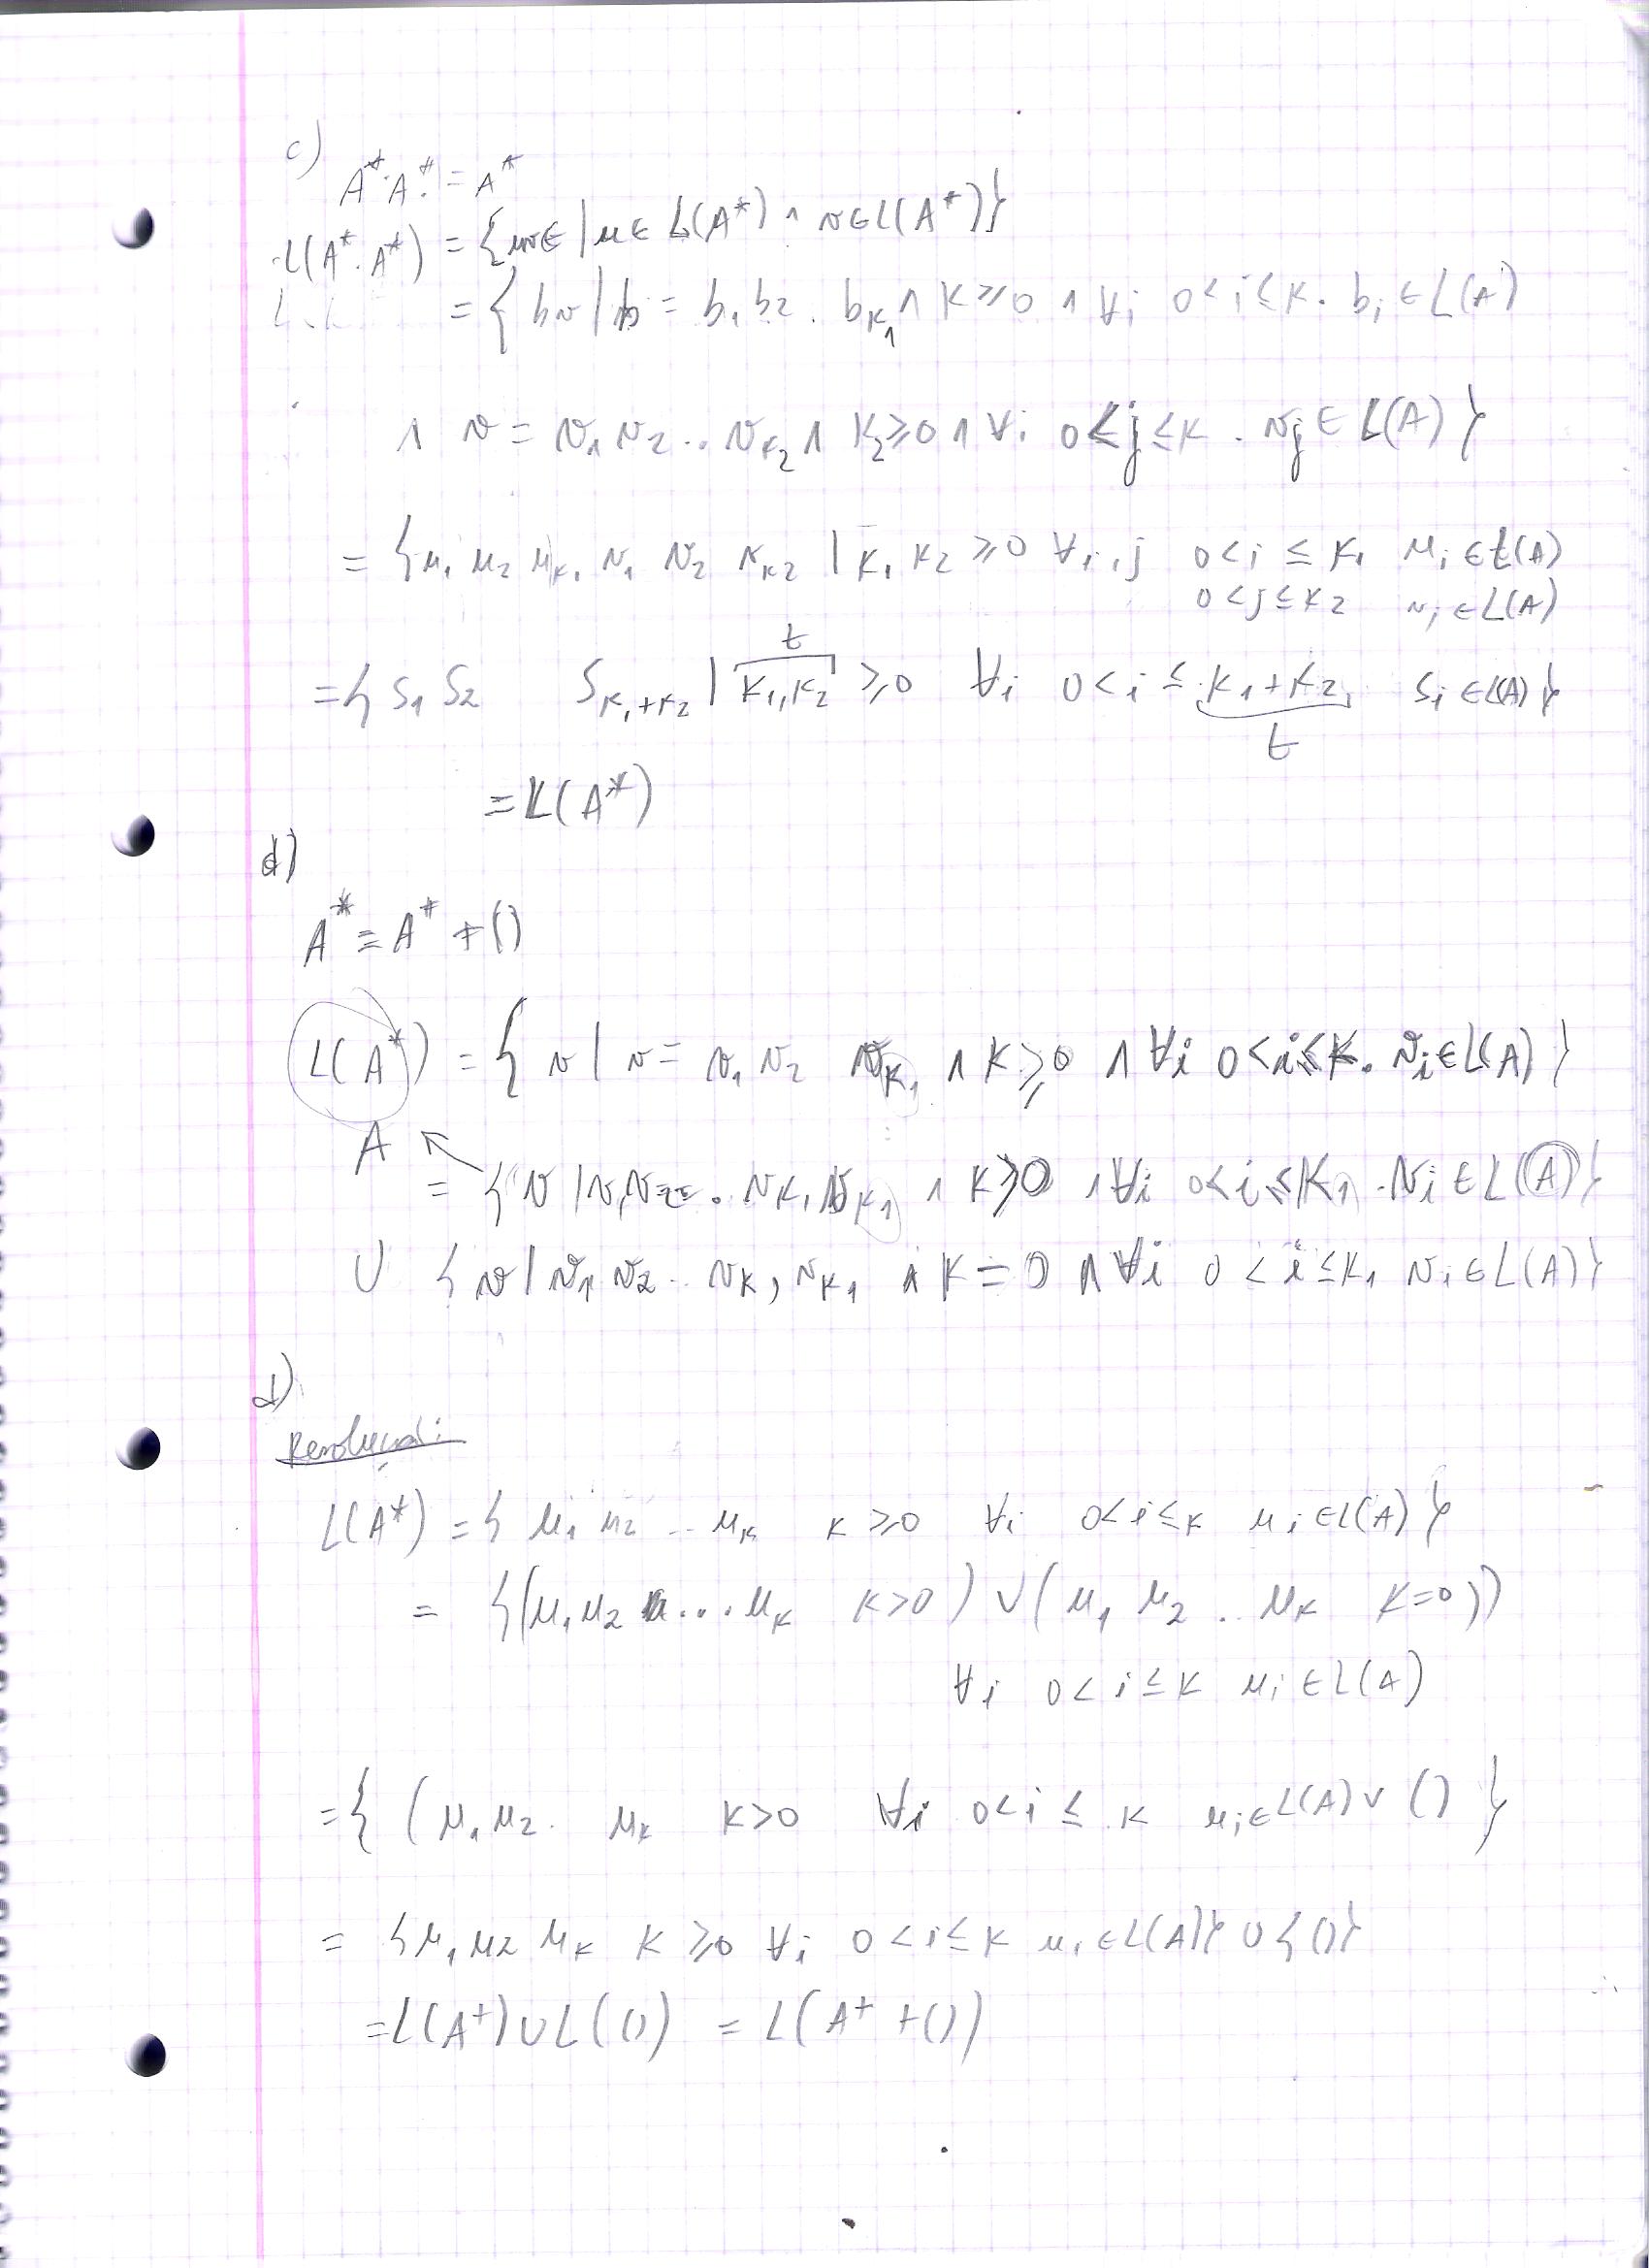 c)
A*.A* = A*
L(A*.A*) = {uv∈ | u ∈ L(A*) ∧ v∈L(A*)}
= { bv | b = b₁ b₂ . bₖ₁ ∧ K ≥ 0 ∧ ∀i 0 < i ≤ K . bᵢ ∈ L(A)
∧ v = v₁ v₂ .. vₖ₂ ∧ K₂ ≥ 0 ∧ ∀i 0 < j ≤ K . vⱼ ∈ L(A) }
= { u₁ u₂ uₖ₁ v₁ v₂ vₖ₂ | K₁ K₂ ≥ 0 ∀i,j 0 < i ≤ K₁ uᵢ ∈ L(A)
0 < j ≤ K₂ vⱼ ∈ L(A)
t
= { S₁ S₂ Sₖ₁₊ₖ₂ | K₁,K₂ ≥ 0 ∀i 0 < i ≤ K₁+K₂, Sᵢ ∈ L(A) }
t
= L(A*)
d)
A* = A⁺ + ()
L(A*) = { v | v = v₁ v₂ vₖ₁ ∧ K ≥ 0 ∧ ∀i 0 < i ≤ K . vᵢ ∈ L(A) }
A
= { v | v₁ v₂ . vₖ, vₖ₁ ∧ K > 0 ∧ ∀i 0 < i ≤ K₁ . vᵢ ∈ L(A) }
∪ { v | v₁ v₂ .. vₖ, vₖ₁ ∧ K = 0 ∧ ∀i 0 < i ≤ K₁ vᵢ ∈ L(A) }
d)
Resolução:
L(A*) = { u₁ u₂ .. uₖ K ≥ 0 ∀i 0 < i ≤ K uᵢ ∈ L(A) }
= { (u₁ u₂ ... uₖ K > 0) ∨ (u₁ u₂ .. uₖ K = 0 ))
∀i 0 < i ≤ K uᵢ ∈ L(A)
= { ( u₁ u₂ . uₖ K > 0 ∀i 0 < i ≤ K uᵢ ∈ L(A) ∨ () }
= { u₁ u₂ uₖ K ≥ 0 ∀i 0 < i ≤ K uᵢ ∈ L(A) } ∪ { () }
= L(A⁺) ∪ L(()) = L(A⁺ + ())